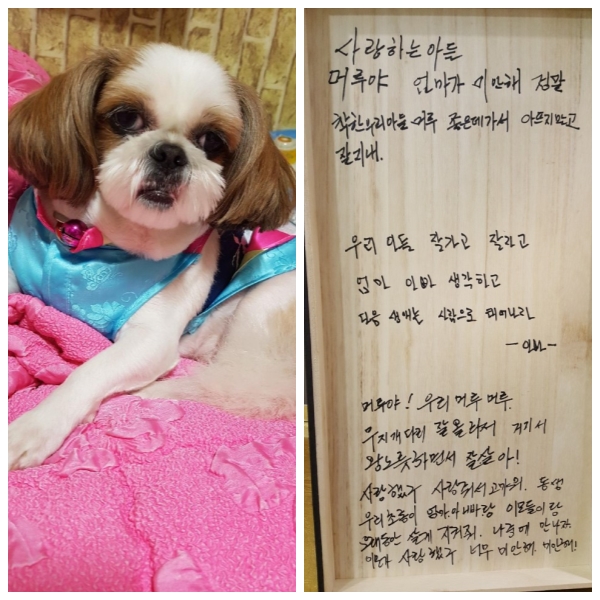 사랑하는아들
머루야 엄마가 미안해 정말
착한우리아들 머루 좋은데가서 아프지말고
잘지내.
우리 아들 잘가고 잘하고
엄마 아빠 생각하고
다음 생애는 사람으로 태어나라
- 아빠 -
머루야! 우리 머루 머루.
무지개다리 잘 올라가서 거기서
왕노릇하면서 잘살아!
사랑했구 사랑줘서 고마워. 동생
우리초롱이 엄마.아빠랑 이모들이랑
오래동안 살게 지켜줘. 나중에 만나자.
사랑했구 너무 미안해. 미안해!